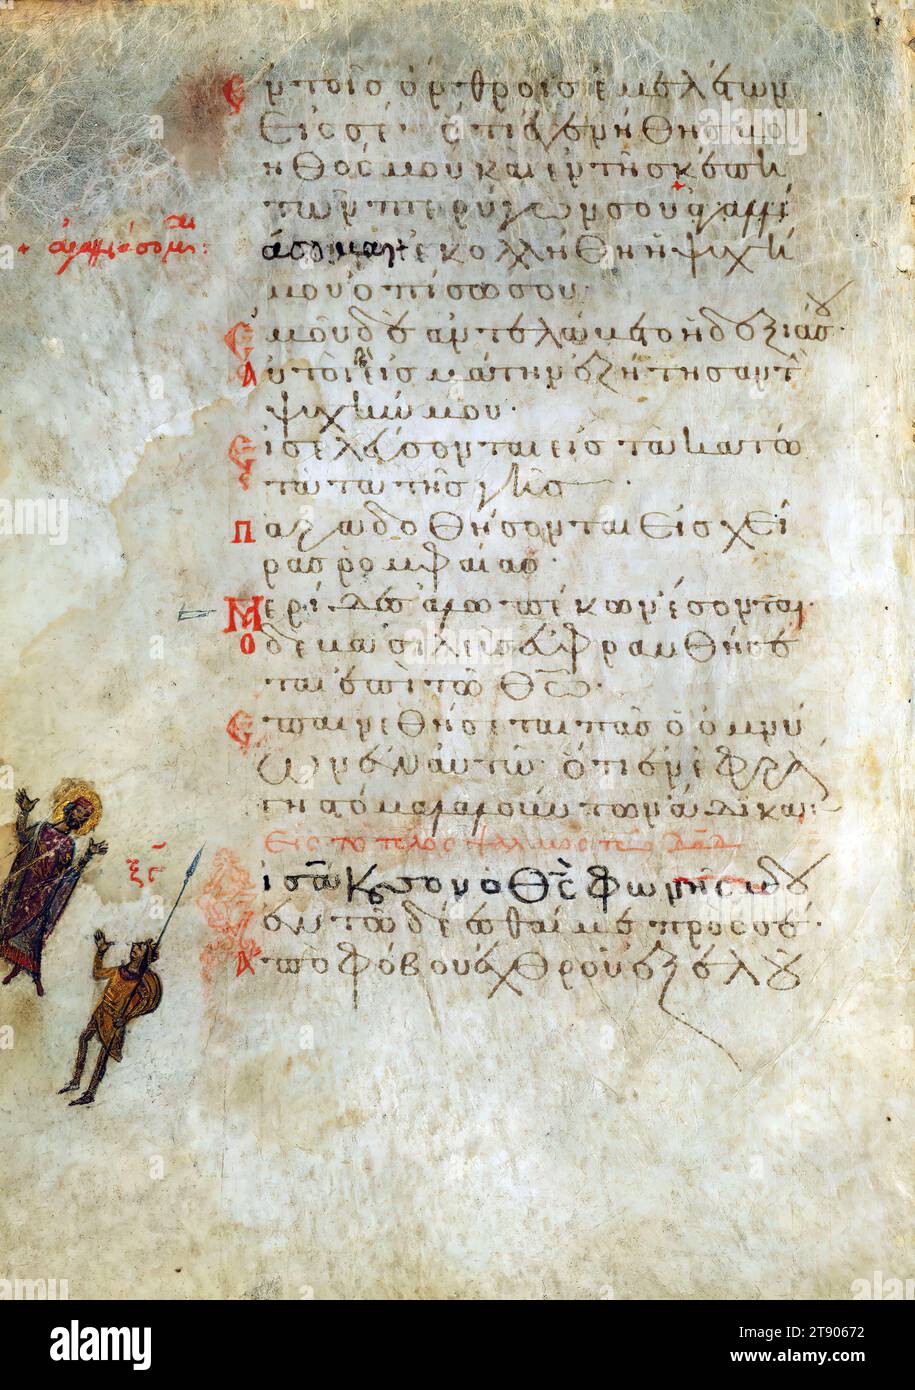 Ἐν τοῖς ὄρθροις ἐμελέτων
εἰς σέ· ὅτι ἐγενήθης βο
ηθός μου καὶ ἐν τῇ σκέπῃ
τῶν πτερύγων σου ἀγαλλι
άσομαι· ἐκολλήθη ἡ ψυχή
μου ὀπίσω σου·
+ ἀγαλλιάσομαι:
ἐμοῦ δὲ ἀντελάβετο ἡ δεξιά σου·
Αὐτοὶ δὲ εἰς μάτην ἐζήτησαν τὴν
ψυχήν μου·
Εἰσελεύσονται εἰς τὰ κατώ
τατα τῆς γῆς·
Παραδοθήσονται εἰς χεῖ
ρας ρομφαίας·
Μερίδες ἀλωπέκων ἔσονται·
Ὁ δὲ βασιλεὺς εὐφρανθήσε
ται ἐπὶ τῷ θω·
Ἐπαινεθήσεται πᾶς ὁ ὀμνύ
ων ἐν αὐτῷ· ὅτι ἐνεφρά
γη στόμα λαλούντων ἄδικα:
Εἰς τὸ τέλος ψαλμὸς τῷ δαδ
ξγ
Εἰσάκουσον ὁ θς φωνῆς μου
ἐν τῷ δέεσθαί με πρὸς σέ·
Ἀπὸ φόβου ἐχθροῦ ἐξελοῦ
alamy
alamy
Image ID: 2T90672
www.alamy.com